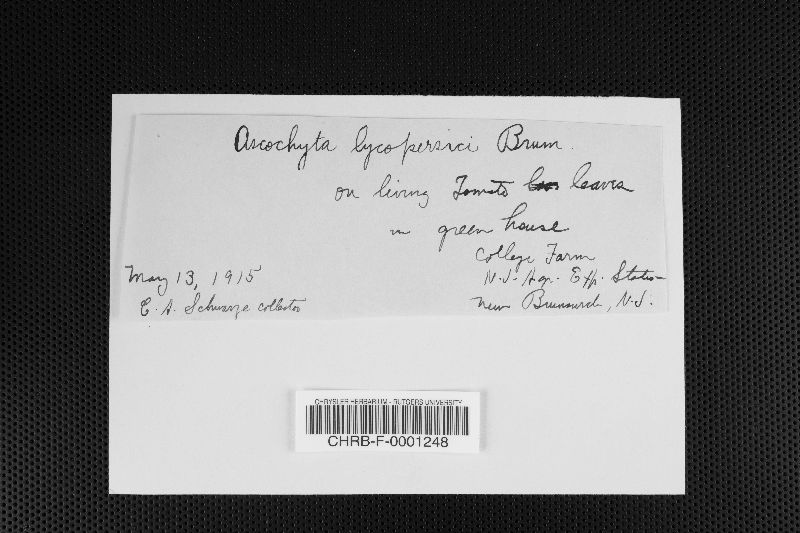 Ascochyta lycopersici Brum.
on living Tomato leaves
in green house
College Farm
N.J. Agr. Exp. Station
New Brunswick, N.J.
May 13, 1915
C. A. Schwarze collector
CHRYSLER HERBARIUM - RUTGERS UNIVERSITY
CHRB-F-0001248